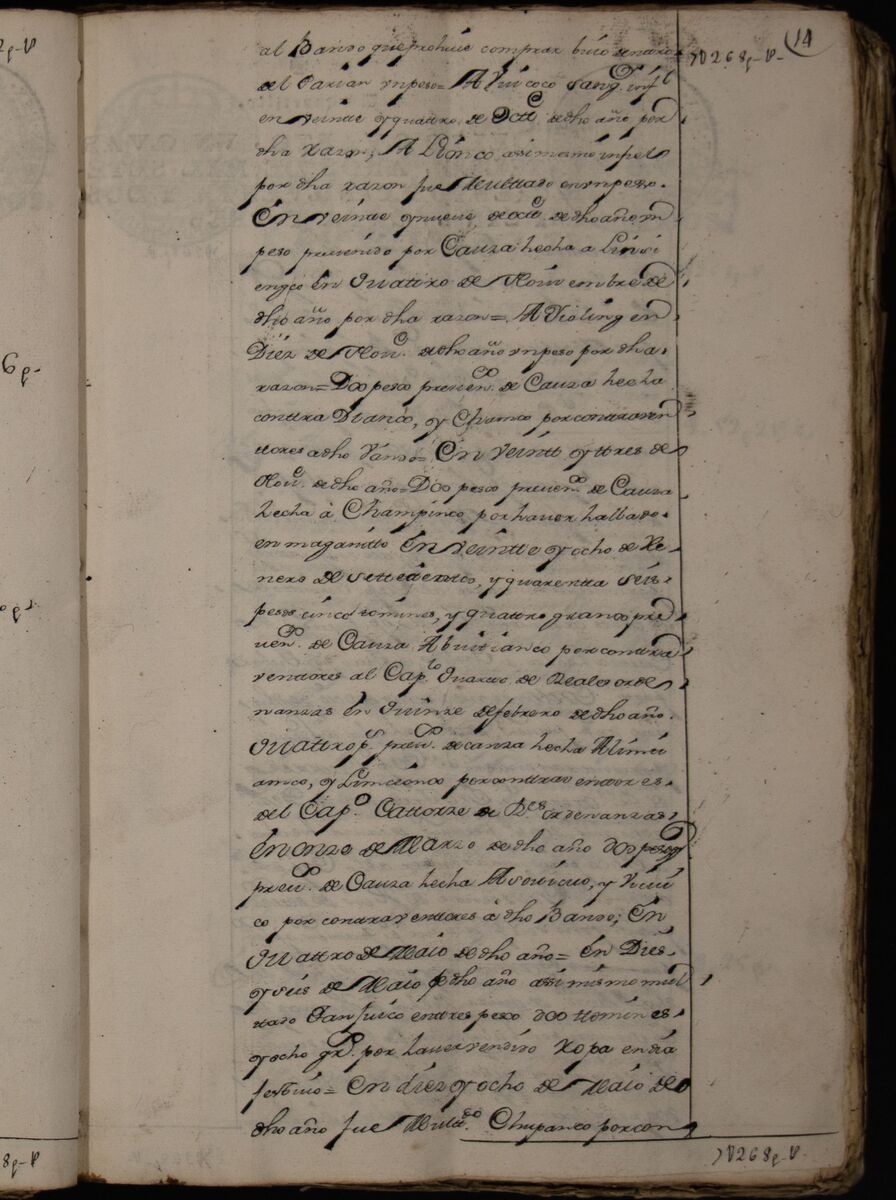 14
al Bando que prohive comprar
del Parian vn peso= A Vuicoco Sangley infiel
en veinte y quattro de Octtre. de dho año por
dha razon; A Lionco assimismo infiel
por dha razon fue Multtado en vn pesso.
En veinte y nueve de octtre. de dho año, vn
peso prevenido por Cauza hecha a Linsi
engco En Quattro de Noviembre de
dho año por dha razon= A Violing en
Diez de Nove. de dho año vn peso por dha
razon= Dos pesos preven.os de Cauza hecha
conttra Dianco, y Chanco por conttraven
ttores a dho Vando= En veintte y ttres de
Nove. de dho año= Dos pesos preven.os de Cauza
hecha à Champinco por haver hallado
en maganitto En veintte y ocho de He-
nero de settecientos, y quarentta seis
pesos cinco tomines, y quattro granos pre
ven.os de Cauza A buitianco por conttra
ventores al Cap.lo Quarto de Reales orde
nanzas En Quinze de febrero de dho año.
Quattro ps. prev.os de cauza hecha A limci
anco, y Limcionco por conttraventores
del Cap.o Cattorze de Rs. ordenanzas
En onze de Marzo de dho año dos pesos
prev.os de Cauza hecha A
co por contraventores à dho Bando; En
Quattro de Maio de dho año= En Dies
y seis de Maio de dho año assimismo mul
tado Tan Juico en tres pesos dos ttomines
y ocho gros. por haver vendido ropa en dia
festivo= En diez y ocho de Maio de
dho año fue Multtdo. Chupanco por con